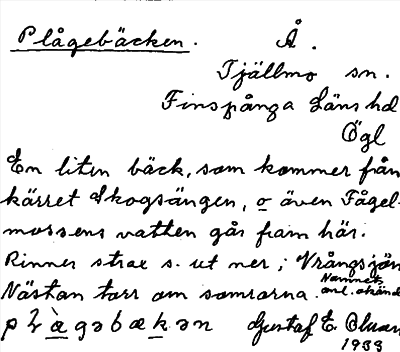 Plågebäcken. Å.
Tjällmo sn.
Finspånga Läns hd
Ögl
En liten bäck, som kommer från
kärret Skogsängen, o även Fågel-
mossens vatten går fram här.
Rinner strax s. ut ner i Vrångsjön
Nästan torr om somrarna. Namnets
anl. okänd
Gustaf E.
1933